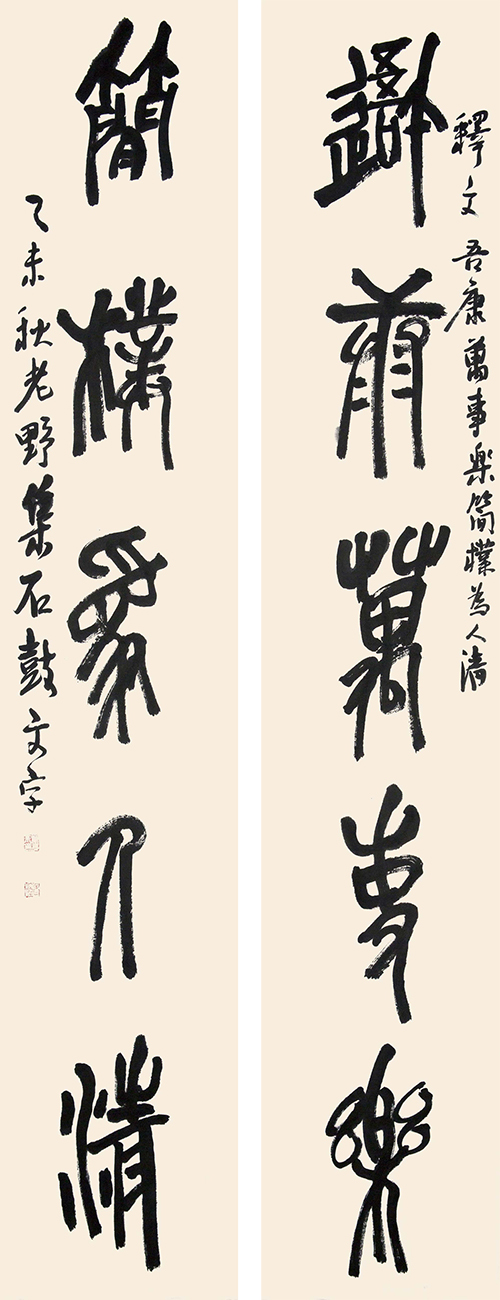 釋文吾康萬事樂简樸為人清
吾康萬事樂
簡樸為人清
乙未秋老野集石鼓文字